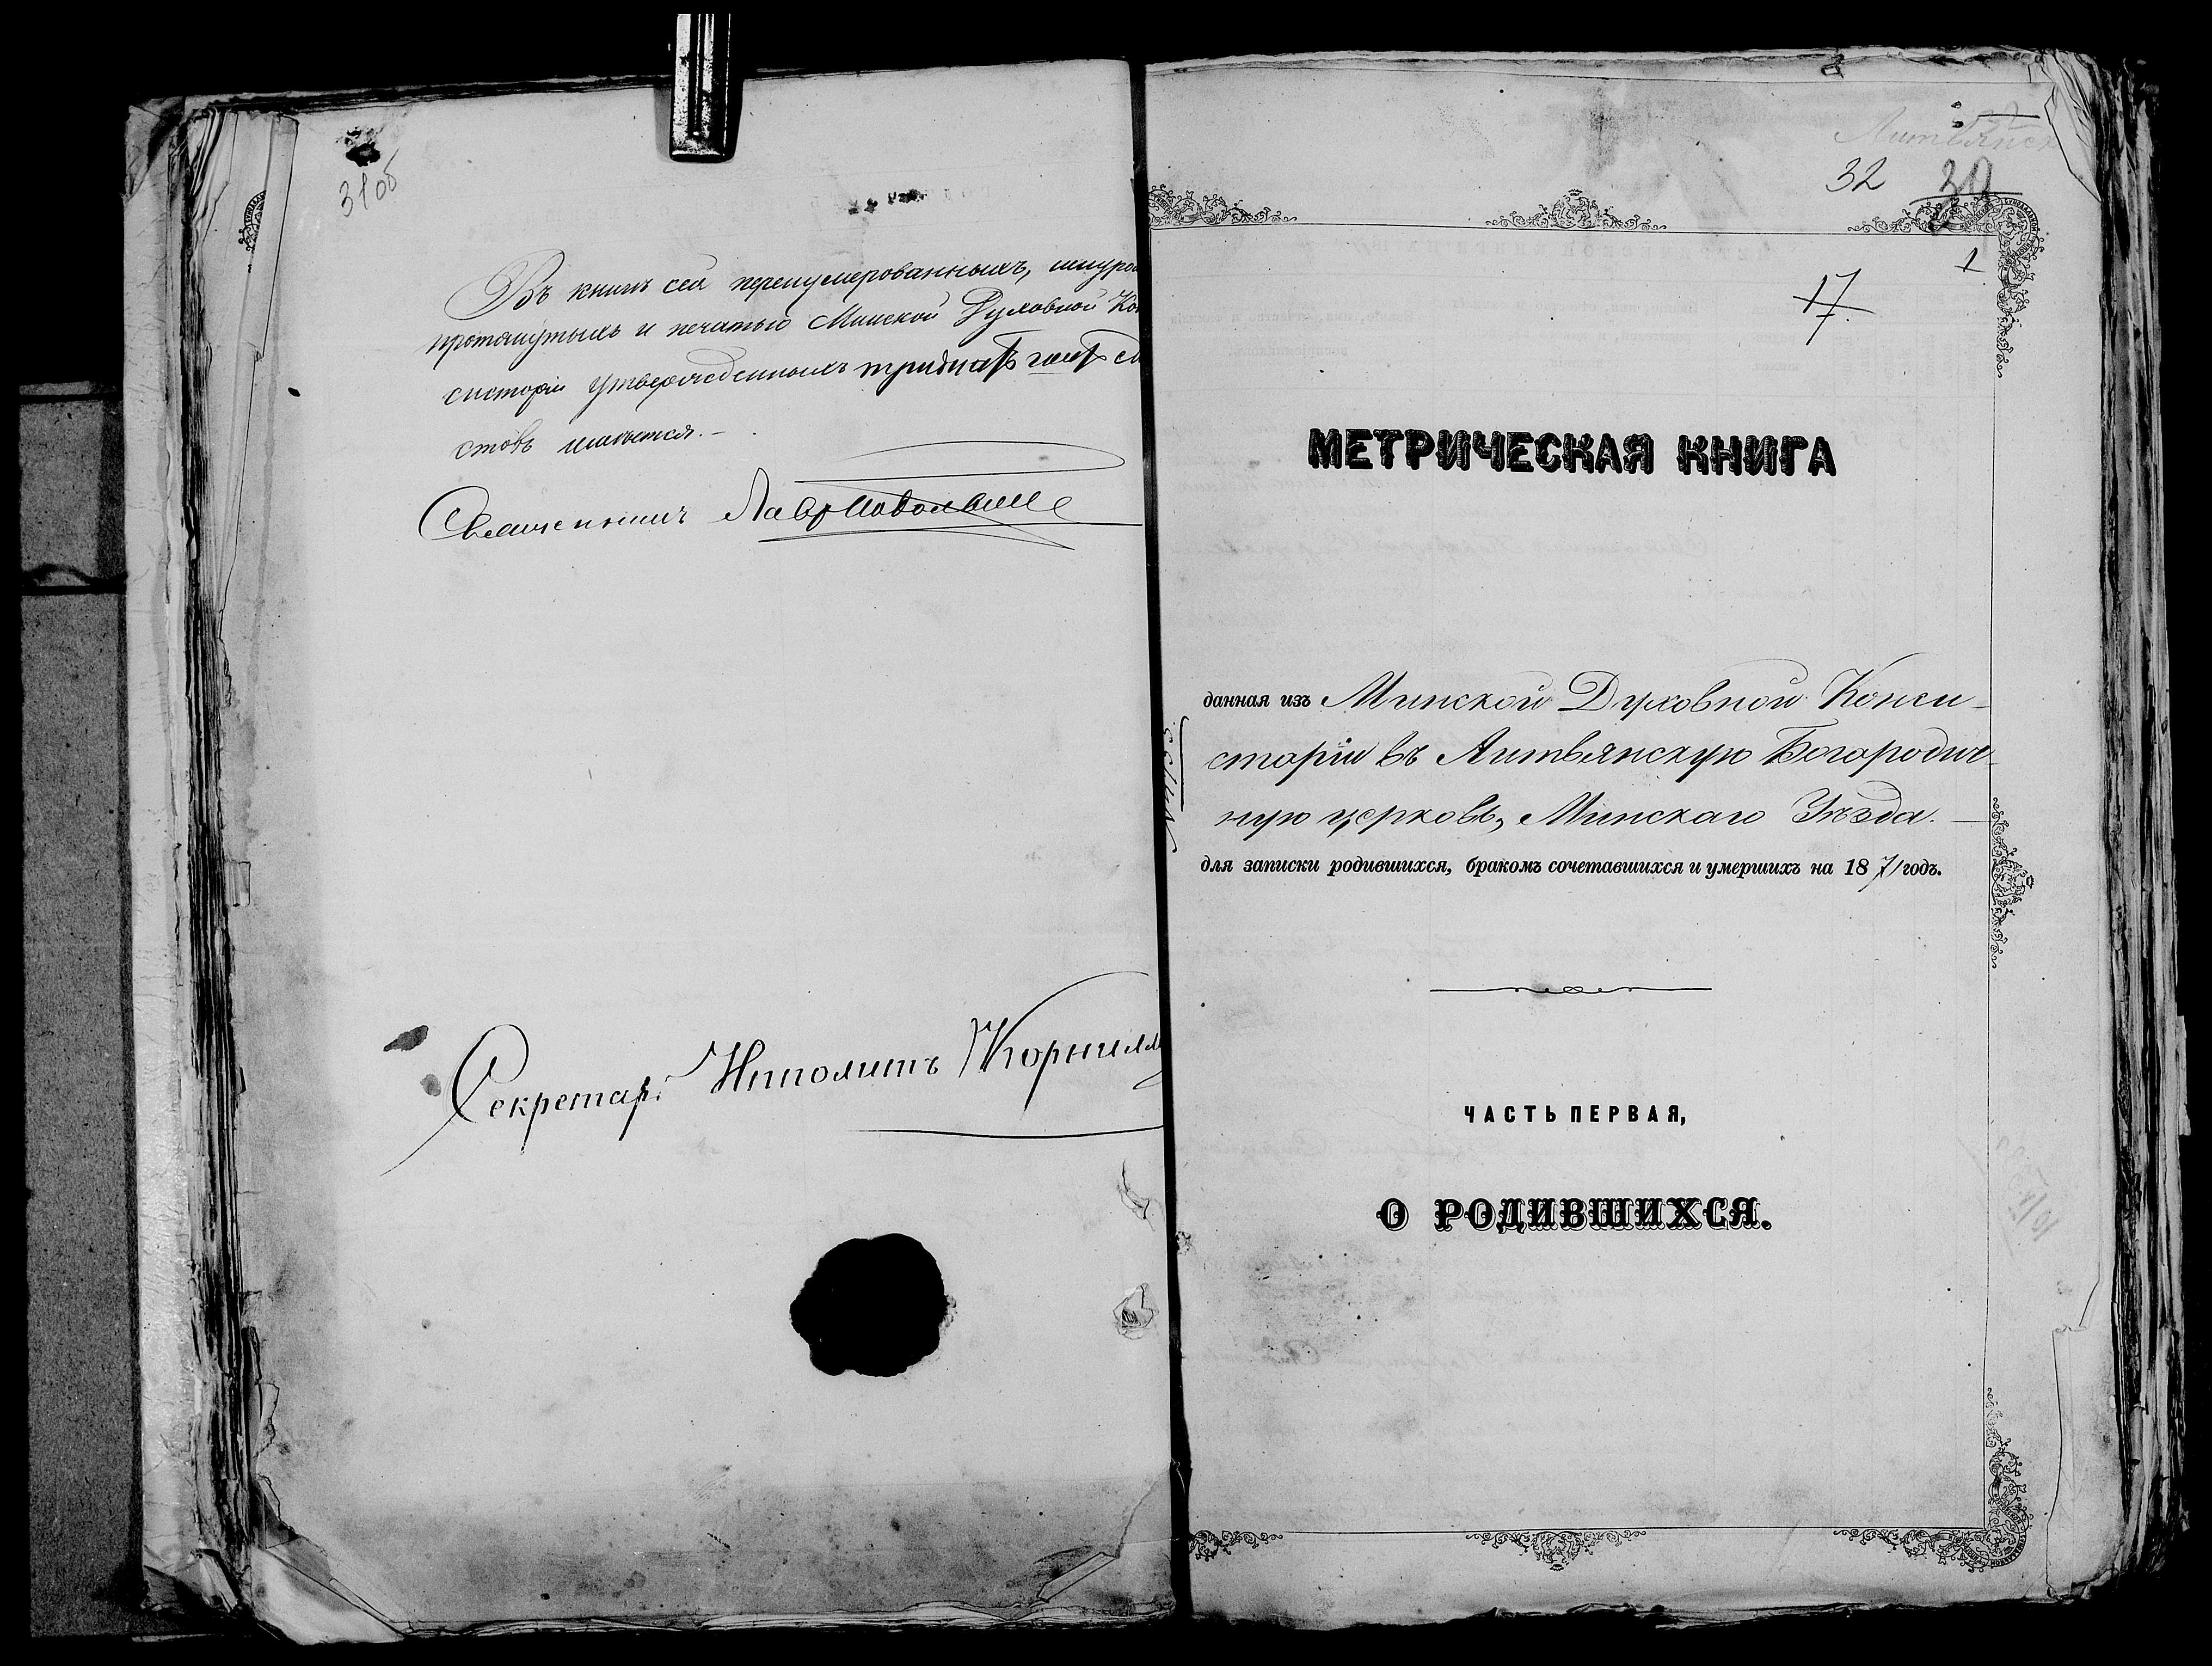 31об
Въ книгѣ сей перенумерованныхъ, шнуро
протянутыхъ и печатью Минской Духовной Кон
систоріи утвержденныхъ тридцать
стовъ имѣется.—
Священникъ
Секретарь Ипполитъ Корнил
Литвянск
32 30
1
17
МЕТРИЧЕСКАЯ КНИГА
данная изъ Минской Духовной Конси-
сторіи въ Литвянскую Богородич-
ную церковь, Минскаго Уѣзда.—
для записки родившихся, бракомъ сочетавшихся и умершихъ на 1871 годъ.
ЧАСТЬ ПЕРВАЯ,
О РОДИВШИХСЯ.